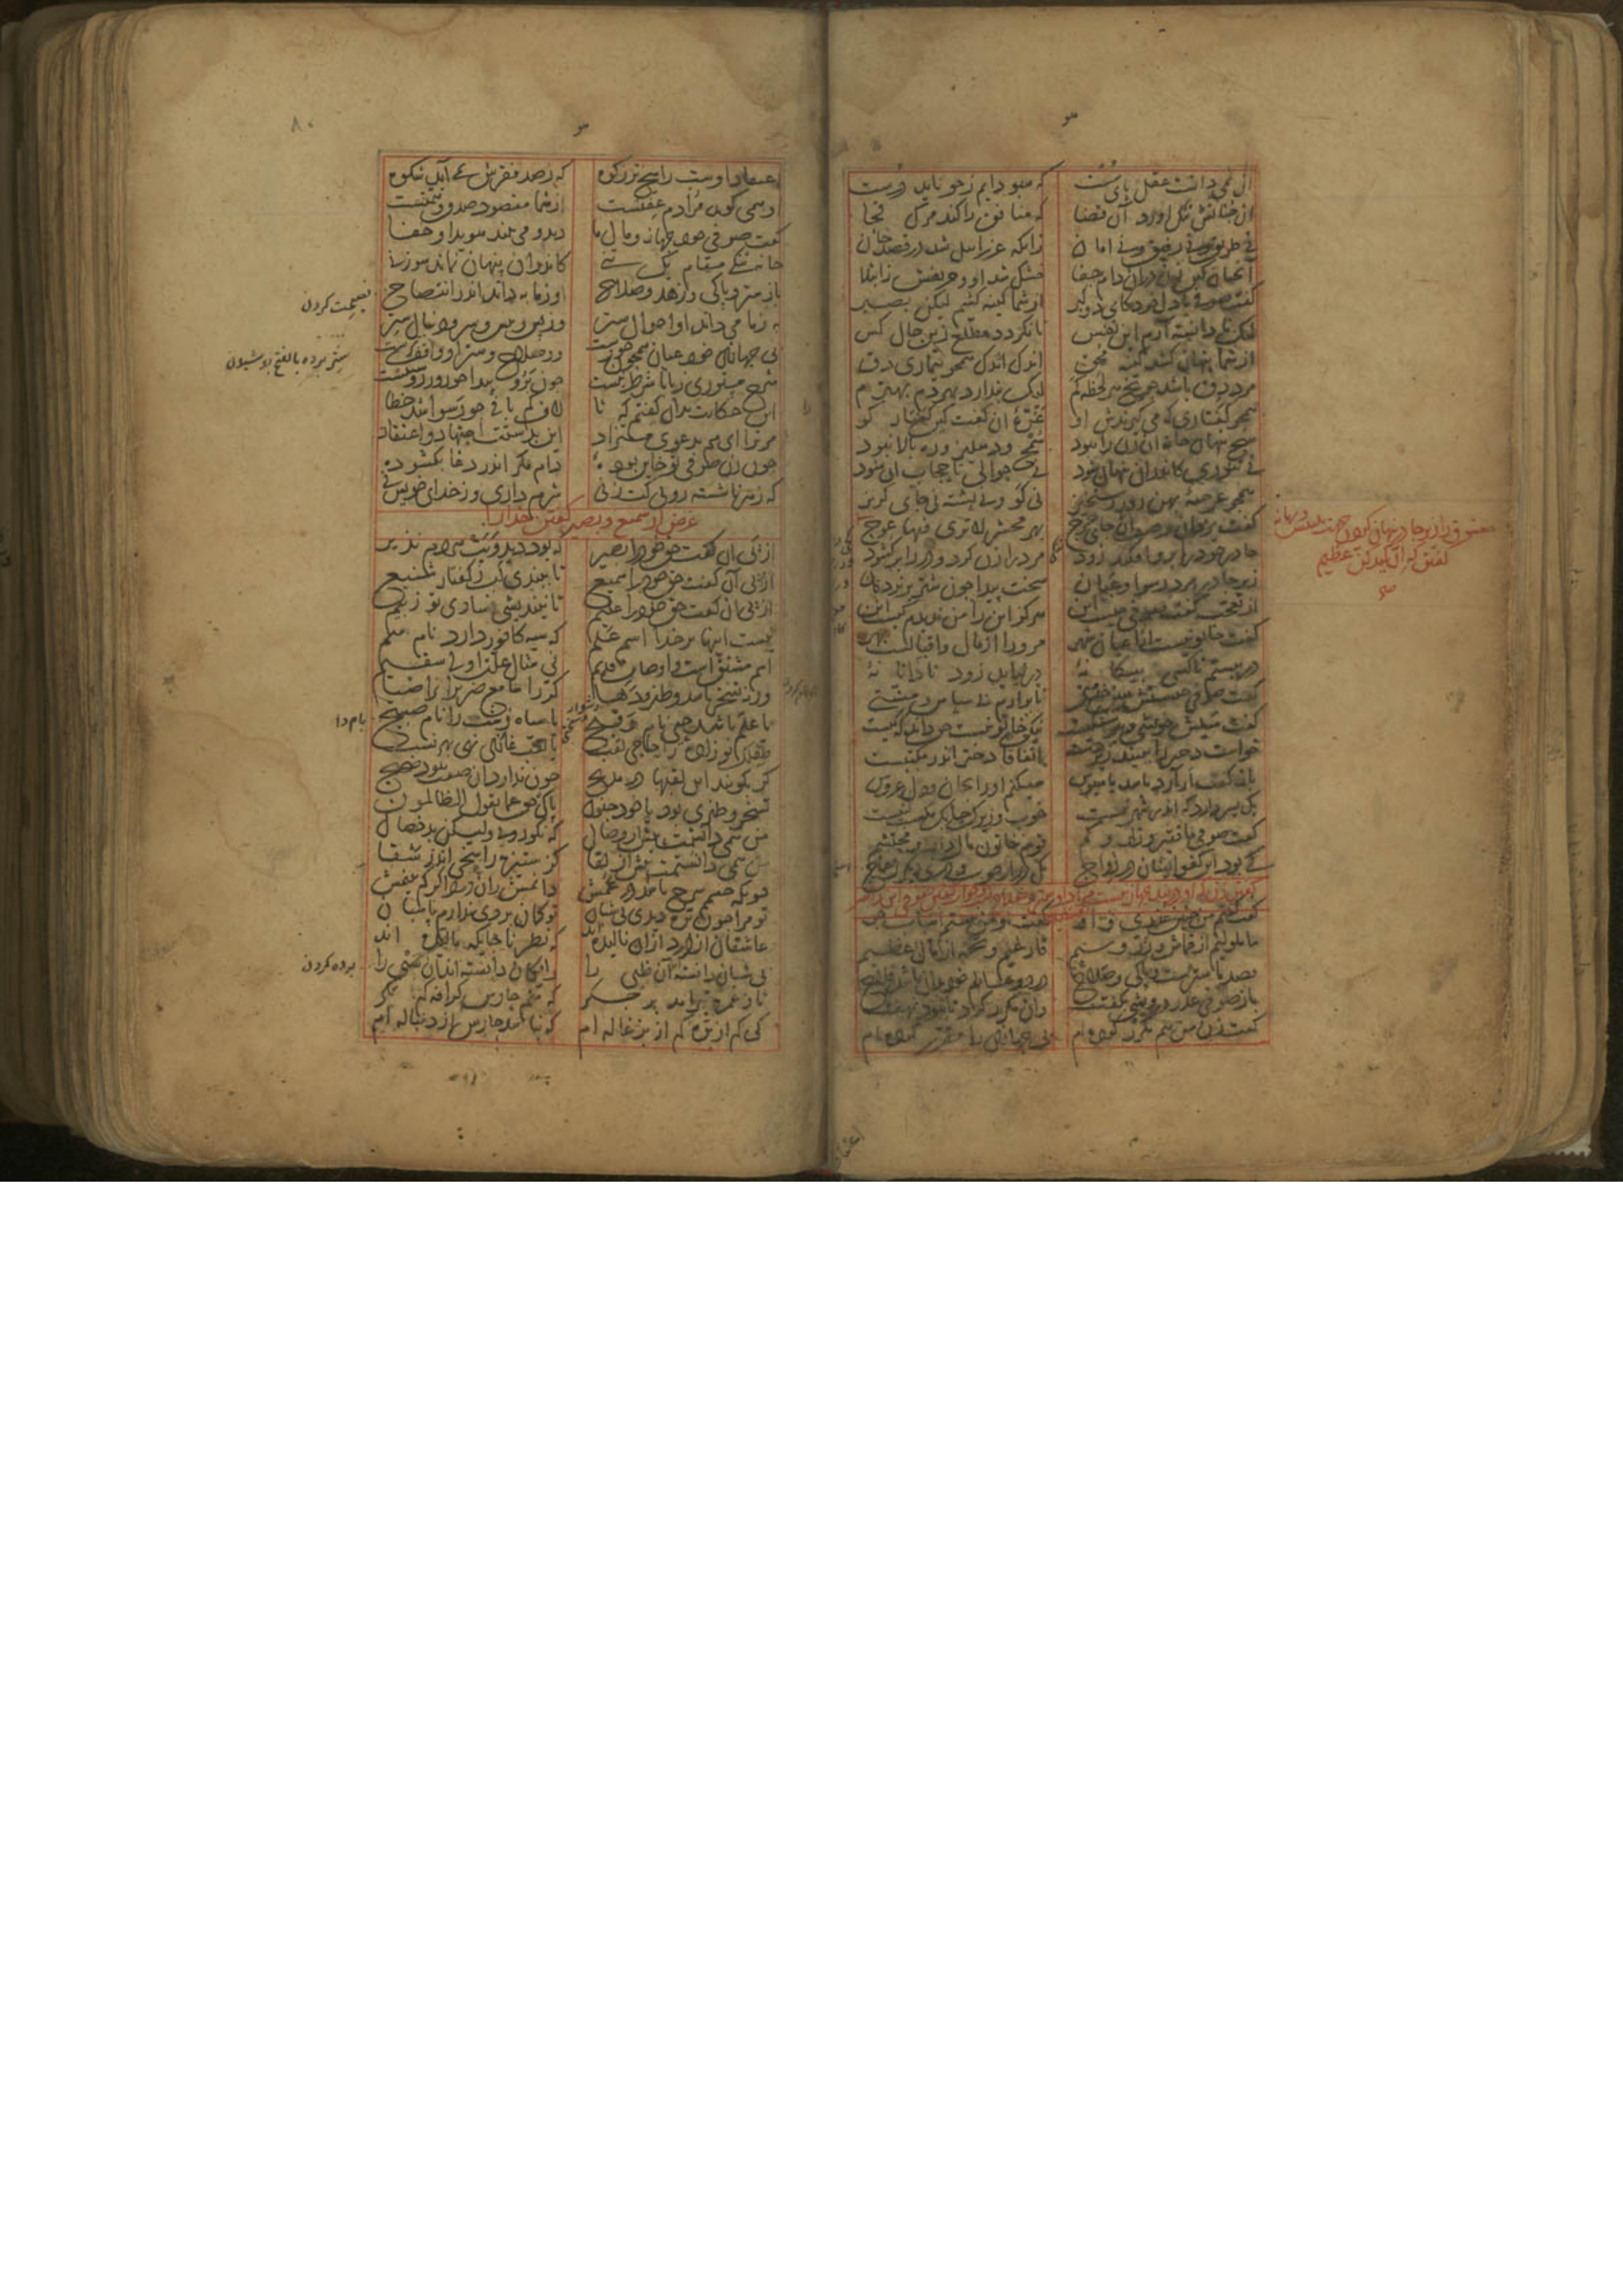 آن نمی دانست عقل پای سست که سبو دایم ز جو ناید درست
آن چنانش تنگ آورد آن قضا که منافق را کند مرگ فجا
نی طریق و نی رفیق و نی امان زانکه عزراییل شد در قصد جان
آنچنان کین زن دران دام جفا خشک شد او و حریفش ز ابتلا
گفت صوفی با دل خود کای دو گبر از شما کینه کشم لیکن بصبر
لیک نادانسته آرم این نفس تا نگردد مطلع زین حال کس
از شما پنهان کشد کینه محق اندک اندک همچو بیماری دق
مرد دق باشد چو یخ هر لحظه کم لیک پندارد بهر دم بهترم
همچو کفتاری که می گیرندش او غرهٔ آن گفت کین کفتار کو
هیچ پنهان خانه آن زن را نبود سمج و دهلیز و ره بالا نبود
نی تنوری کاندران پنهان شود نی جوالی تا حجاب آن شود
همچو عرصهٔ پهن روز رستخیز نی گو و نی پشته نی جای گریز
گفت یزدان وصف آن جای حرج بهر محشر لا تری فیها عوج
معشوق را زیر چادر پنهان کردن جهت تلبیس و بهانه
گفتن که ان کیدکن عظیم
چادر خود را برو افکند زود مرد را زن کرد و در را برگشود
زیر چادر مرد رسوا و عیان سخت پیدا چون شتر بر نردبان
از تعجب گفت صوفی چیست این هرگز این را من ندیدم کیست این
گفت خاتونیست از اعیان شهر مر ورا از مال و اقبالست بهر
در ببستم تا کسی بیگانهٔ در نیاید زود نادانانهٔ
گفت صوفی چیستش هین خدمتی تا برآرم بی سپاس و منتی
گفت میلش خویشی و پیوستگیست نیک خاتونیست حق داند که کیست
خواست دختر را ببیند زیر دست اتفاقا دختر اندر مکتبست
باز گفت ار آرد باشد یا سبوس میکنم او را بجان و دل عروس
یک پسر دارد که اندر شهر نیست خوب و زیرک چابک و مکسب کنیست
گفت صوفی ما فقیر و زار و کم قوم خاتون مال دار و محتشم
کی بود این کفو ایشان در زواج یک در از چوب و دری دیگر ز عاج
گفتن زن که او در بند جهاز نیست مراد او ستر و صلاحست و جواب گفتن صوفی این را
گفت گفتم من چنین عذری و او گفت نه من نیستم اسباب جو
ما ملولیم از قماش و زر و سیم فارغیم و تخمه از مال عظیم
قصد ما سترست و پاکی و صلاح در دو عالم خود بدان باشد فلاح
باز صوفی عذر درویشی بگفت وان مکرر کرد تا نبود نهفت
گفت زن من هم مکرر کرده ام بی جهازی را مقرر کرده ام
۸۰
اعتقاد اوست راسخ تر ز کوه که ز صد فقرش نمی آید شکوه
او همی گوید مرادم عفتست از شما مقصود صدق و همتست
گفت صوفی خود جهاز و مال ما دید و می بیند هویدا و خفا
خانه تنگی مقام یک تنی کاندران پنهان نماند سوزنی
باز ستر و پاکی و زهد و صلاح او ز ما به داند اندر انتصاح
نصیحت کردن
به ز ما می داند او احوال ستر وز پس و پیش و سر و دنبال ستر
ستر پرده بالفتح پوشیدن
بی جهازی خود عیان همچون خورست ور صلاح و ستر او واقف ترست
شرح مستوری ز بابا شرط نیست چون برو پیدا چو روز روشنیست
این حکایت بدان گفتم که تا لاف کم بافی چو رسوا شد خطا
مر ترا ای هم بدعوی مستزاد این بدستت اجتهاد و اعتقاد
چون زن صوفی تو خاین بودهٔ دام مکر اندر دغا بگشودهٔ
که ز هر ناشسته رویی کپ زنی شرم داری وز خدای خویش نی
غرض از سمیع و بصیر گفتن خدا را
از پی آن گفت حق خود را بصیر که بود دید ویت هر دم نذیر
از پی آن گفت حق خود را سمیع تا ببندی لب ز گفتار شنیع
از پی آن گفت حق خود را علیم تا نیندیشی فسادی تو ز بیم
نیست اینها بر خدا اسم علم که سیه کافور دارد نام هم
اسم مشتق است و اوصاف قدیم نی مثال علت اولی سقیم
ورنه تسخر باشد و طنز و دها کر را سامع ضریران را ضیا
یا علم باشد حیی نام وقیح یا سیاه زشت را نام صبیح
طفلک نوزاده را حاجی لقب یا لقب غازی نهی بهر نسب
گر بگویند این لقبها در مدیح چون ندارد آن صفت نبود صحیح
تسخر و طنزی بود یا خود جنون پاک حق عما یقول الظالمون
من همی دانستمت پیش از وصال که نکورویی ولیکن بدخصال
من همی دانستمت پیش از لقا کز ستیزه راسخی اندر شقا
چونکه چشمم سرخ باشد در عمش دانمش زان درد اگر کم بینمش
تو مرا چون بره دیدی بی شبان تو گمان بردی ندارم پاسبان
عاشقان از درد زان نالیده اند که نظر ناجایگه مالیده اند
بی شبان دانسته اند آن ظبی را رایگان دانسته اند آن سبی را
برده کردن
تا ز غمزه تیر آمد بر جگر که منم حارس گزافه کم نگر
کی کم از بره کم از بزغاله ام که نباشد حارس از دنباله ام